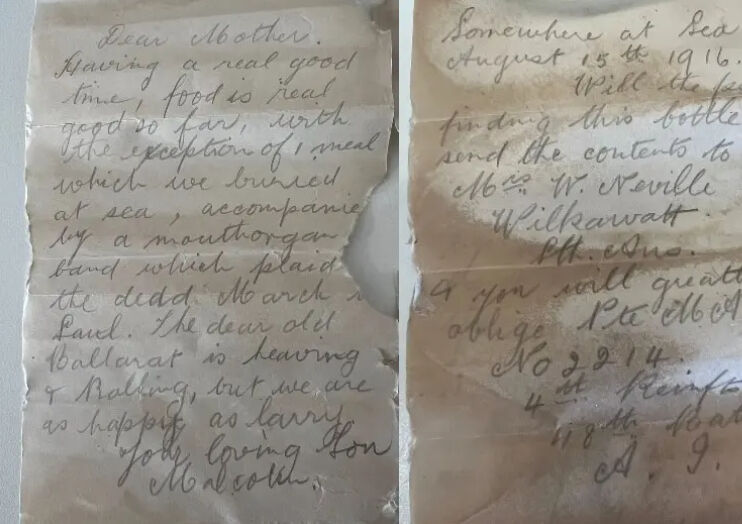 Dear Mother.
Having a real good
time, food is real
good so far, with
the exception of 1 meal
which we burried
at sea, accompanie
by a mouthorgan
band which plaid
the dedd March
Saul. The dear old
Ballarat is heaving
& Rolling, but we are
as happy as larry
Your loving Son
Malcolm.
Somewhere at Sea
August 15th 1916.
Will the
finding this bottle
send the contents to
Mrs W. Neville
Wilkawatt.
Sth. Aus.
& you will
oblige Pte M. A
No 2214.
4th
48th
A. I.